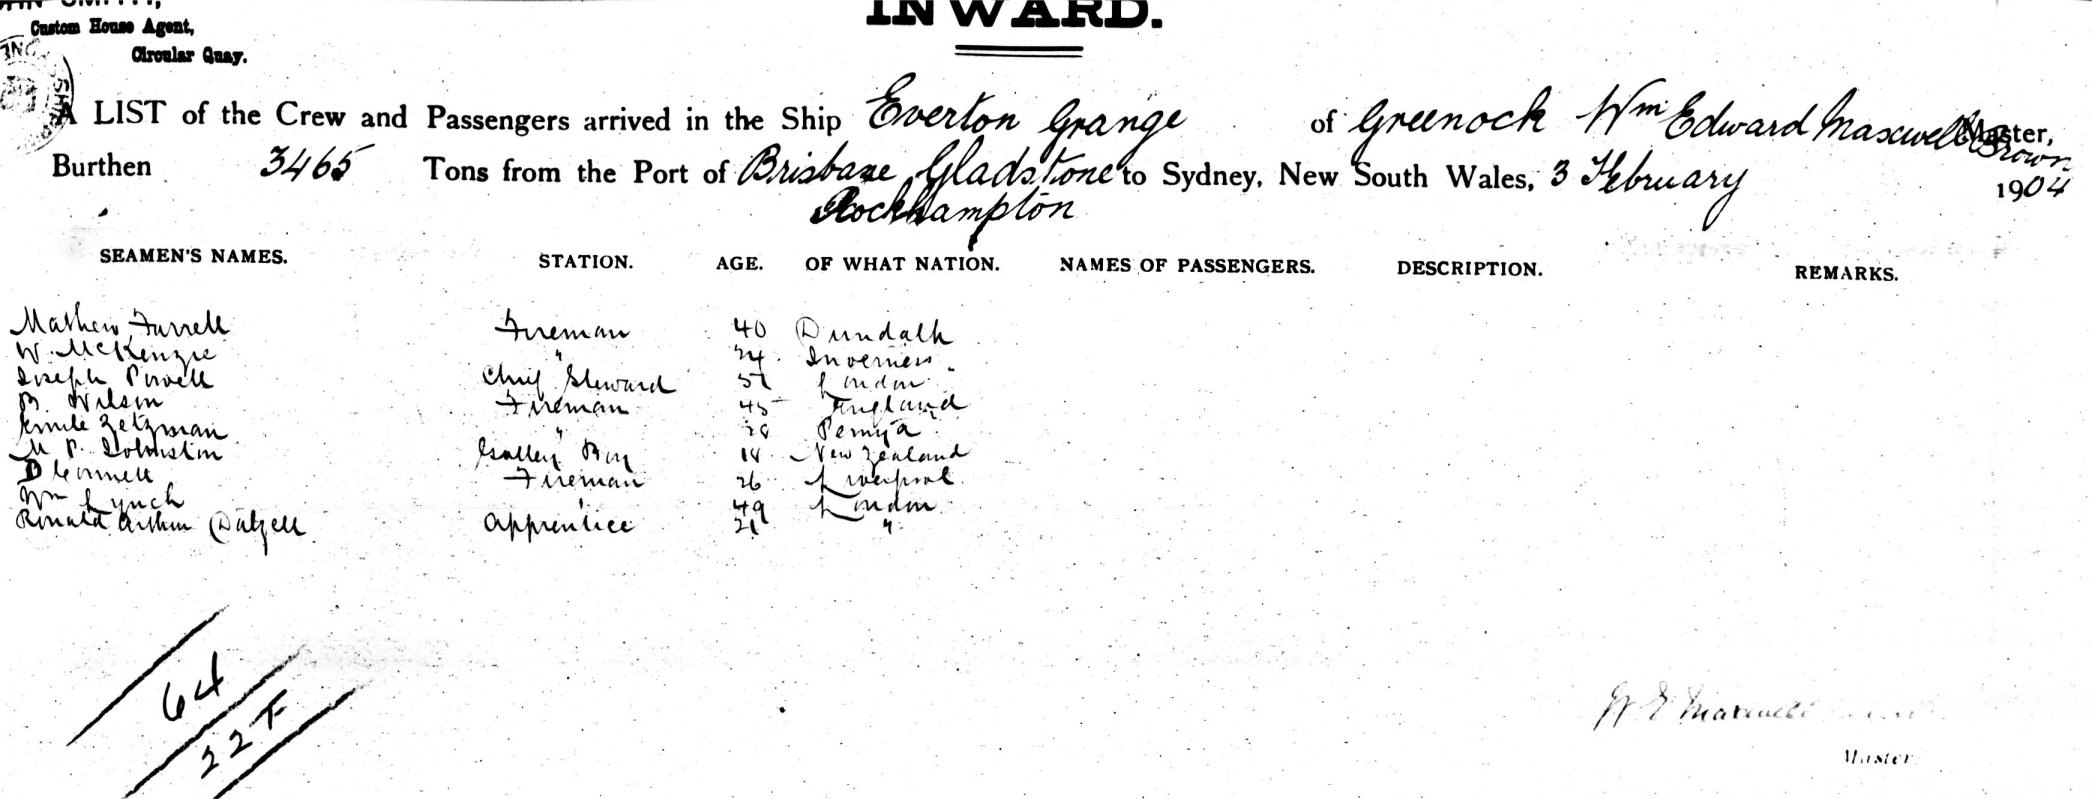 SMITH,
Custom House Agent,
Circular Quay.
INWARD.
A LIST of the Crew and Passengers arrived in the Ship Everton Grange of Greenock Wm Edward Maxwell Brown Master,
Burthen 3465 Tons from the Port of Brisbane Gladstone to Sydney, New South Wales, 3 February 1904
Rockhampton
SEAMEN'S NAMES. STATION. AGE. OF WHAT NATION. NAMES OF PASSENGERS. DESCRIPTION. REMARKS.
Mathew Farrell Fireman 40 Dundalk
W. McKenzie " 24 Inverness
Joseph Powell Chief Steward London
B. Wilson Fireman 45 England
Emile Zetzman " 28
M P. Johnston Galley Boy 18 New Zealand
D Connell Fireman 26 Liverpool
Wm Lynch " 49 London
Ronald Arthur Dalzell Apprentice 21 "
64
22 F
W E Maxwell
Master